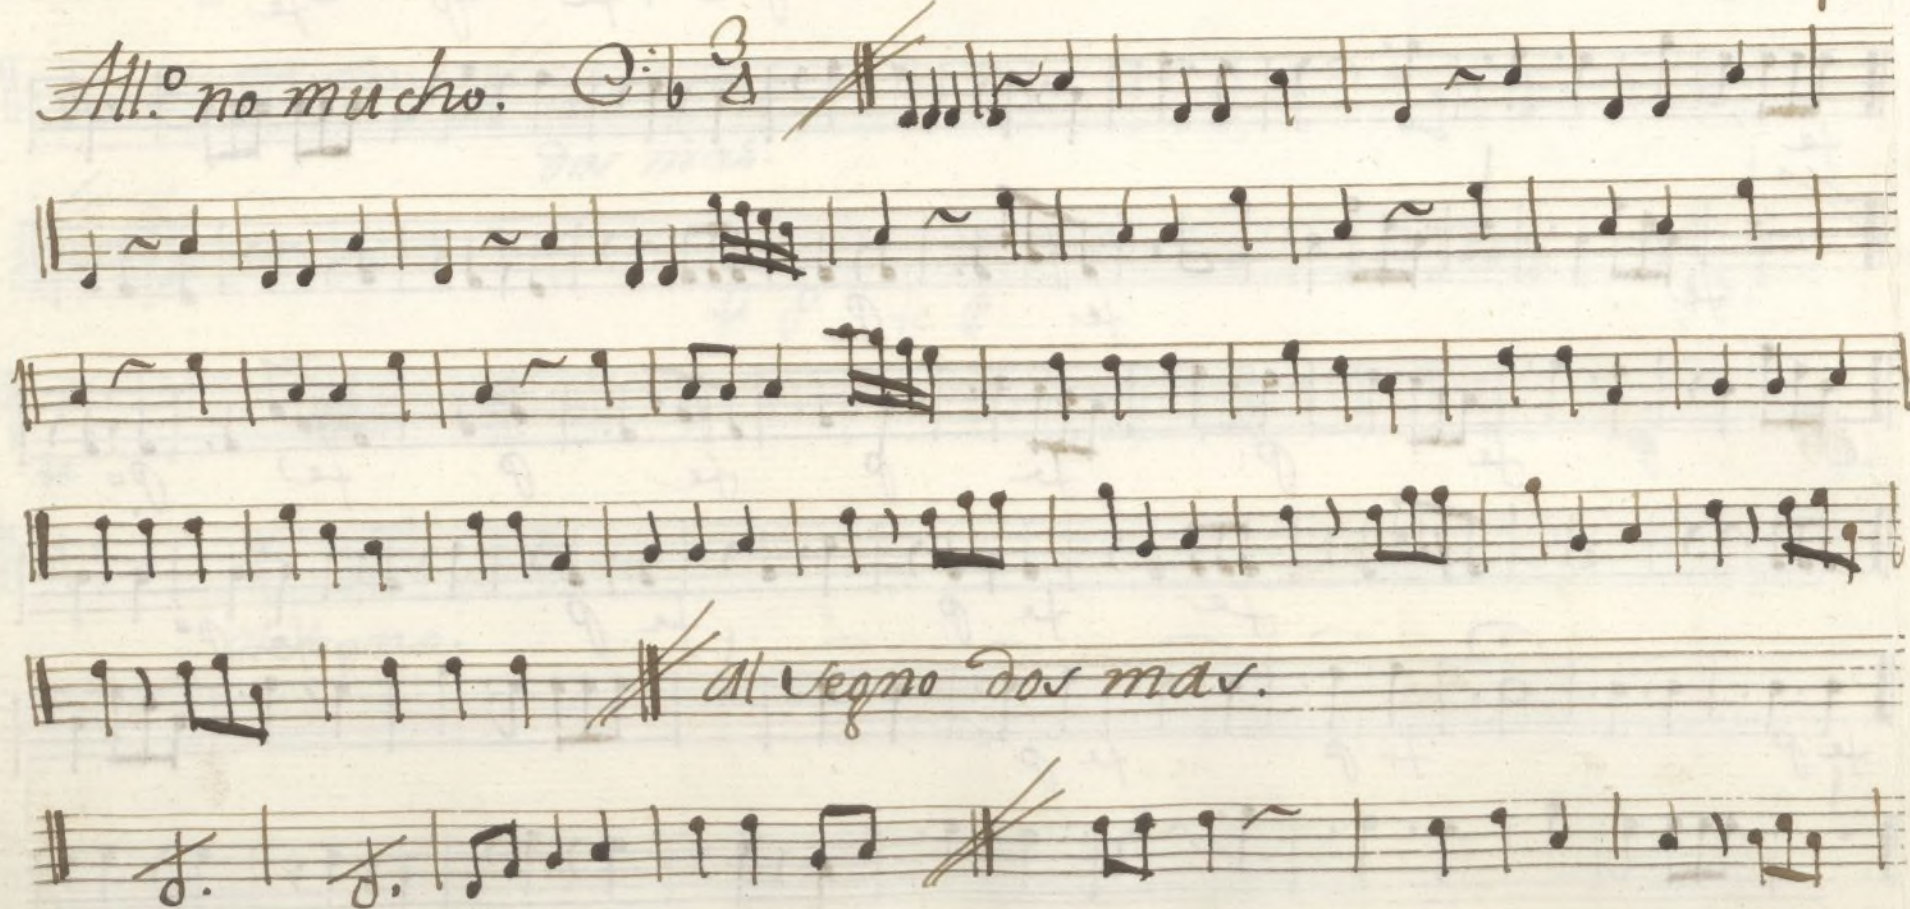 All.º no mucho. 3 4
al segno dos mas.